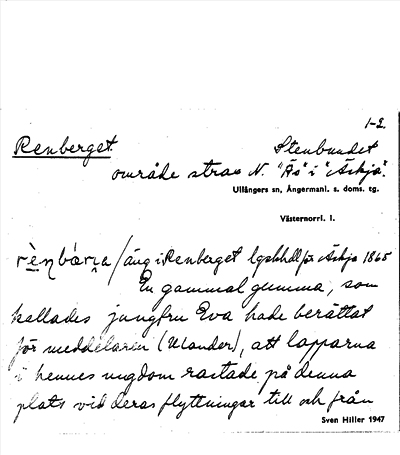 1-2.
Renberget Stenbundet
område strax N. "Ås" i "Äskja".
Ullångers sn, Ångermanl. s. doms. tg.
Västernorrl. l.
rènbária / äng i Renberget lgskhdl för Äskja 1865
En gammal gumma, som
kallades jungfru Eva hade berättat
för meddelaren (Ulander), att lapparna
i hennes ungdom rastade på denna
plats vid deras flyttningar till och från
Sven Hiller 1947